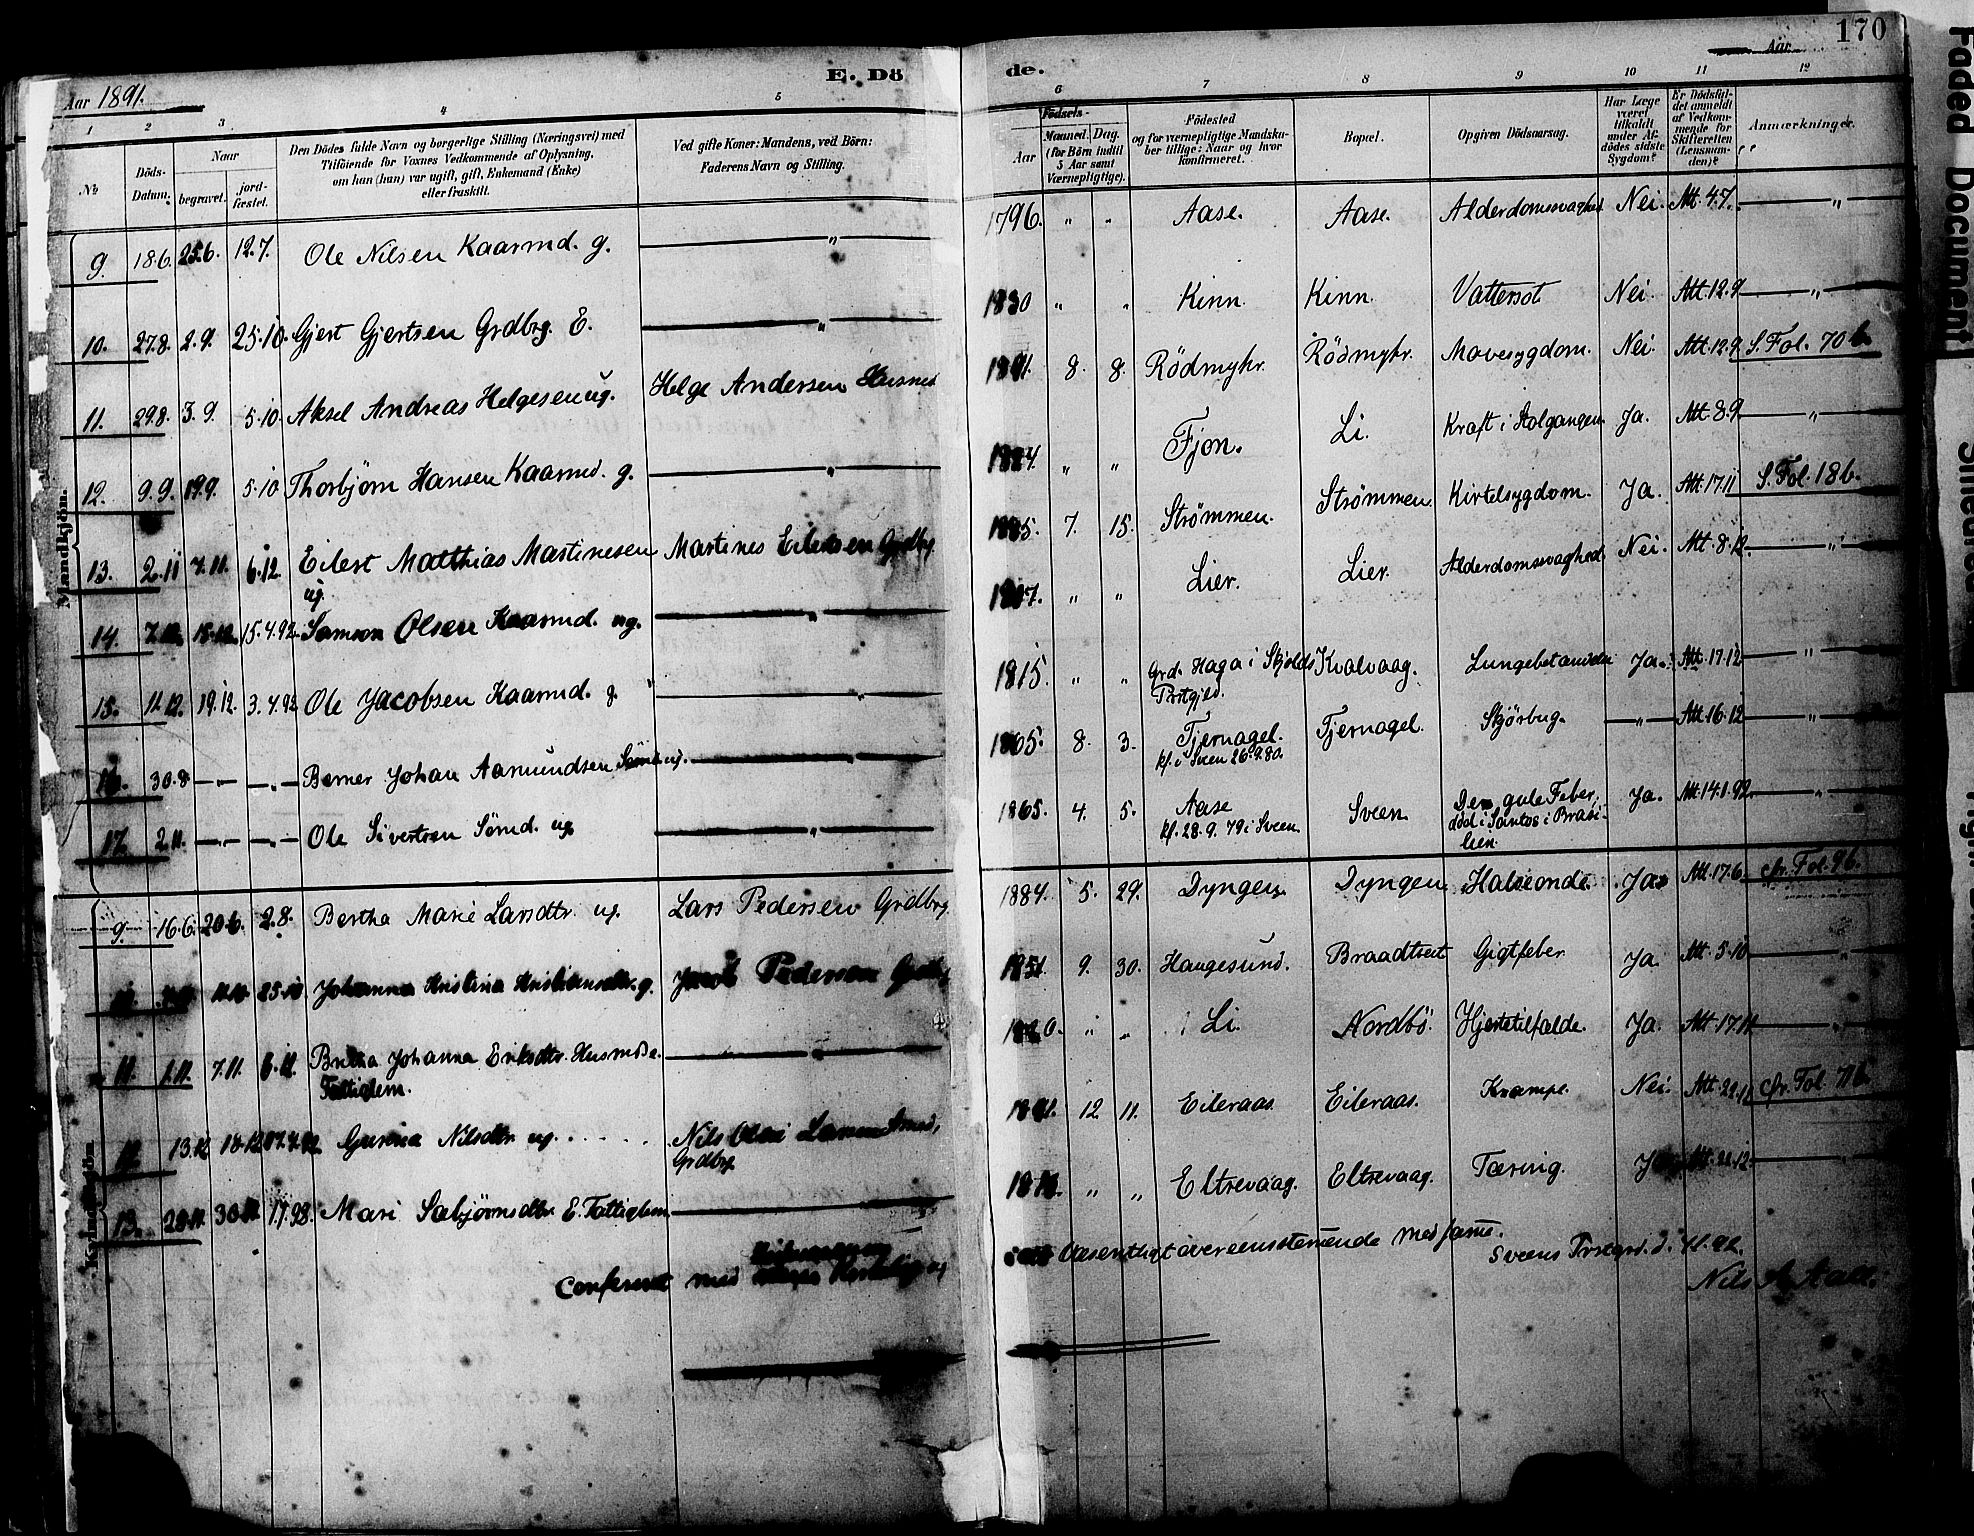 170
E. Dö de.
Aar 1891.
Aar
1 2 3 4 5 6 7 8 9 10 11 12
No
Döds-Datum.
Naar
begravet.
jord-fæstet.
Den Dödes fulde Navn og borgerlige Stilling (Næringsvei) med
Tilföiende for Voxnes Vedkommende af Oplysning,
om han (hun) var ugift, gift, Enkemand (Enke)
eller fraskilt.
Ved gifte Koner: Mandens, ved Börn:
Faderens Navn og Stilling.
Födsels-
Aar
Maaned. Dag.
(for Börn indtil
5 Aar samt
Værnepligtige).
Födested
og for værnepligtige Mandska-
ber tillige: Naar og hvor
konfirmeret.
Bopæl.
Opgiven Dödsaarsag.
Har Læge
været
tilkaldt
under Af-
dödes sidste
Sygdom?
Er Dödsfal-
det anmeldt
af Vedkom-
mende for
Skifteretten
(Lensman-
den)?
Anmærkninger.
Mandkjön.
9. 18.6. 25.6. 12.7. Ole Nilsen Kaarmd. g. — " — 1796. " " Aase. Aase. Alderdomssvaghed Nei. Att. 4.7. — " —
10. 27.8. 2.9. 25.10. Gjert Gjertsen Grdbrg. E. — " — 1830 " " Kinn. Kinn. Vattersot Nei. Att. 12.9 — " —
11. 29.8. 3.9. 5.10. Aksel Andreas Helgesen ug. Helge Andersen Husmd 1891. 8. 8. Rödmyhr. Rödmyhr. Mavesygdom. Nei. Att. 12.9 S. Fol. 70 b.
12. 9.9. 19.9. 5.10 Thorbjörn Hansen Kaarmd. g. — " — 1824. " " Fjon. Li. Kræft i Stolgangen. Ja. Att. 8.9 — " —
13. 2.11 7.11. 6.12. Eilert Matthias Martinesen ug. Martines Eilertsen Grdbrg. 1885. 7. 15. Strømmen. Strømmen. Kirtelsygdom. Ja. Att. 17.11 S. Fol. 18 b.
14. 7.12. 15.12. 15.4.92. Samson Olsen Kaarmd. ug. — " — 1807. " " Lier. Lier. Alderdomssvaghed Nei. Att. 8.12. — " —
15. 11.12. 19.12. 3.4.92 Ole Jacobsen Kaarmd. g. — " — 1815. " " Grd. Haga i Skjolds Prstgjld. Kvalvaag. Lungebetændelse Ja. Att. 17.12 — " —
16. 30.8 — " — — " — Berner Johan Aamundsen Sömd ug. — " — 1865. 8. 3. Tjernagel. kf. i Sveen 26.9.80. Tjernagel. Skjörbug. — " — Att. 16.12 — " —
17. 2.11. — " — — " — Ole Sivertsen Sömd. ug — " — 1865. 4. 5. Aase kf. 28.9.79 i Sveen. Sveen. Den gule Feber, död i Santos i Brasilien. Ja. Att. 14.1.92. — " —
Kvindekjön
9. 16.6. 20.6. 2.8. Bertha Marie Larsdtr. ug. Lars Pedersen Grdbrg. 1884. 5. 29. Dyngen. Dyngen. Halseonde. Ja Att. 17.6 cfr. Fol. 9 b.
25.10 Johanna Kristina Kristiansdtr. g. Jacob Pedersen Grdbrg 1851. 9. 30. Haugesund. Braadtveit Gigtfeber Ja. Att. 5.10 — " —
11. 1.11. 7.11. 6.12. Bertha Johanna Eriksdtr. Husm. E. Fattiglem. — " — 1820. " " Li. Nordbö. Hjertetilfælde. Ja. Att. 17.11 — " —
12. 13.12 18.12 Gurina Nilsdtr. ug. Nils Olai Larsen Grdbrg. 1891. 12 11. Eileraas. Eileraas. Krampe. Nei. Att. 22.12 cfr. Fol. 71 b.
13. Mari Sabjörnsdtr. E. Fattiglem. — " Eltrevaag. Eltrevaag. Tæring. Ja Att. 22.12. — " —
Conferert med Kirkebog og
Væsentligt overensstemmende med samme.
Sveens Prstgrd. d.
Nils A. Aall.